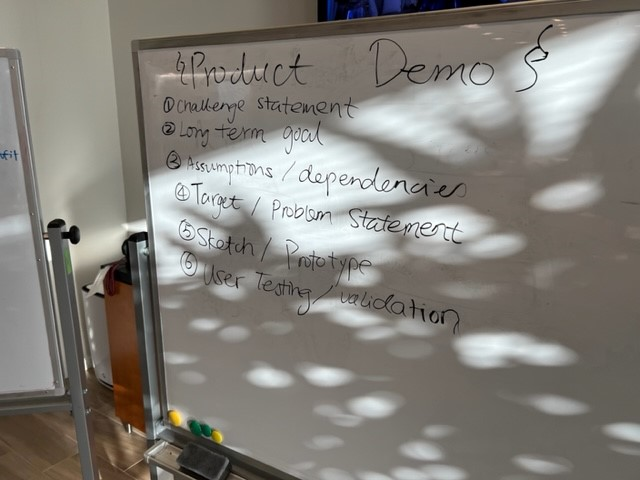 {Product Demo}
① Challenge statement
② Long term goal
③ Assumptions / dependencies
④ Target / Problem Statement
⑤ Sketch / Prototype
⑥ User Testing / validation
fit